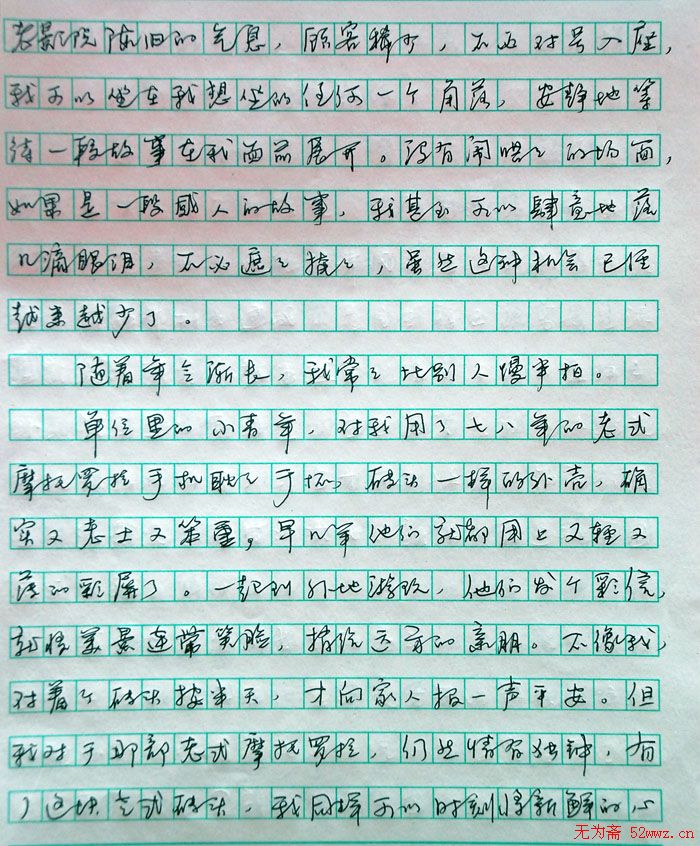 老影院陈旧的气息，顾客稀少，不必对号入座，
我可以坐在我想坐的任何一个角落，安静地等
待一段故事在我面前展开。没有闹哄哄的场面，
如果是一段感人的故事，我甚至可以肆意地落
几滴眼泪，不必遮遮掩掩，虽然这种机会已经
越来越少了。
随着年令渐长，我常常比别人慢半拍。
单位里的小青年，对我用了七八年的老式
摩托罗拉手机耿耿于怀，砖头一样的外壳，确
实又老土又笨重，早几年他们就都用上又轻又
薄的彩屏了。一起到外地游玩，他们发个彩信，
就将美景连带笑脸，捎给远方的亲朋。不像我，
对着个砖头按半天，才向家人报一声平安。但
我对于那部老式摩托罗拉，仍然情有独钟，有
了这块老式砖头，我同样可以时刻将新鲜的心
无为斋 52wwz.cn